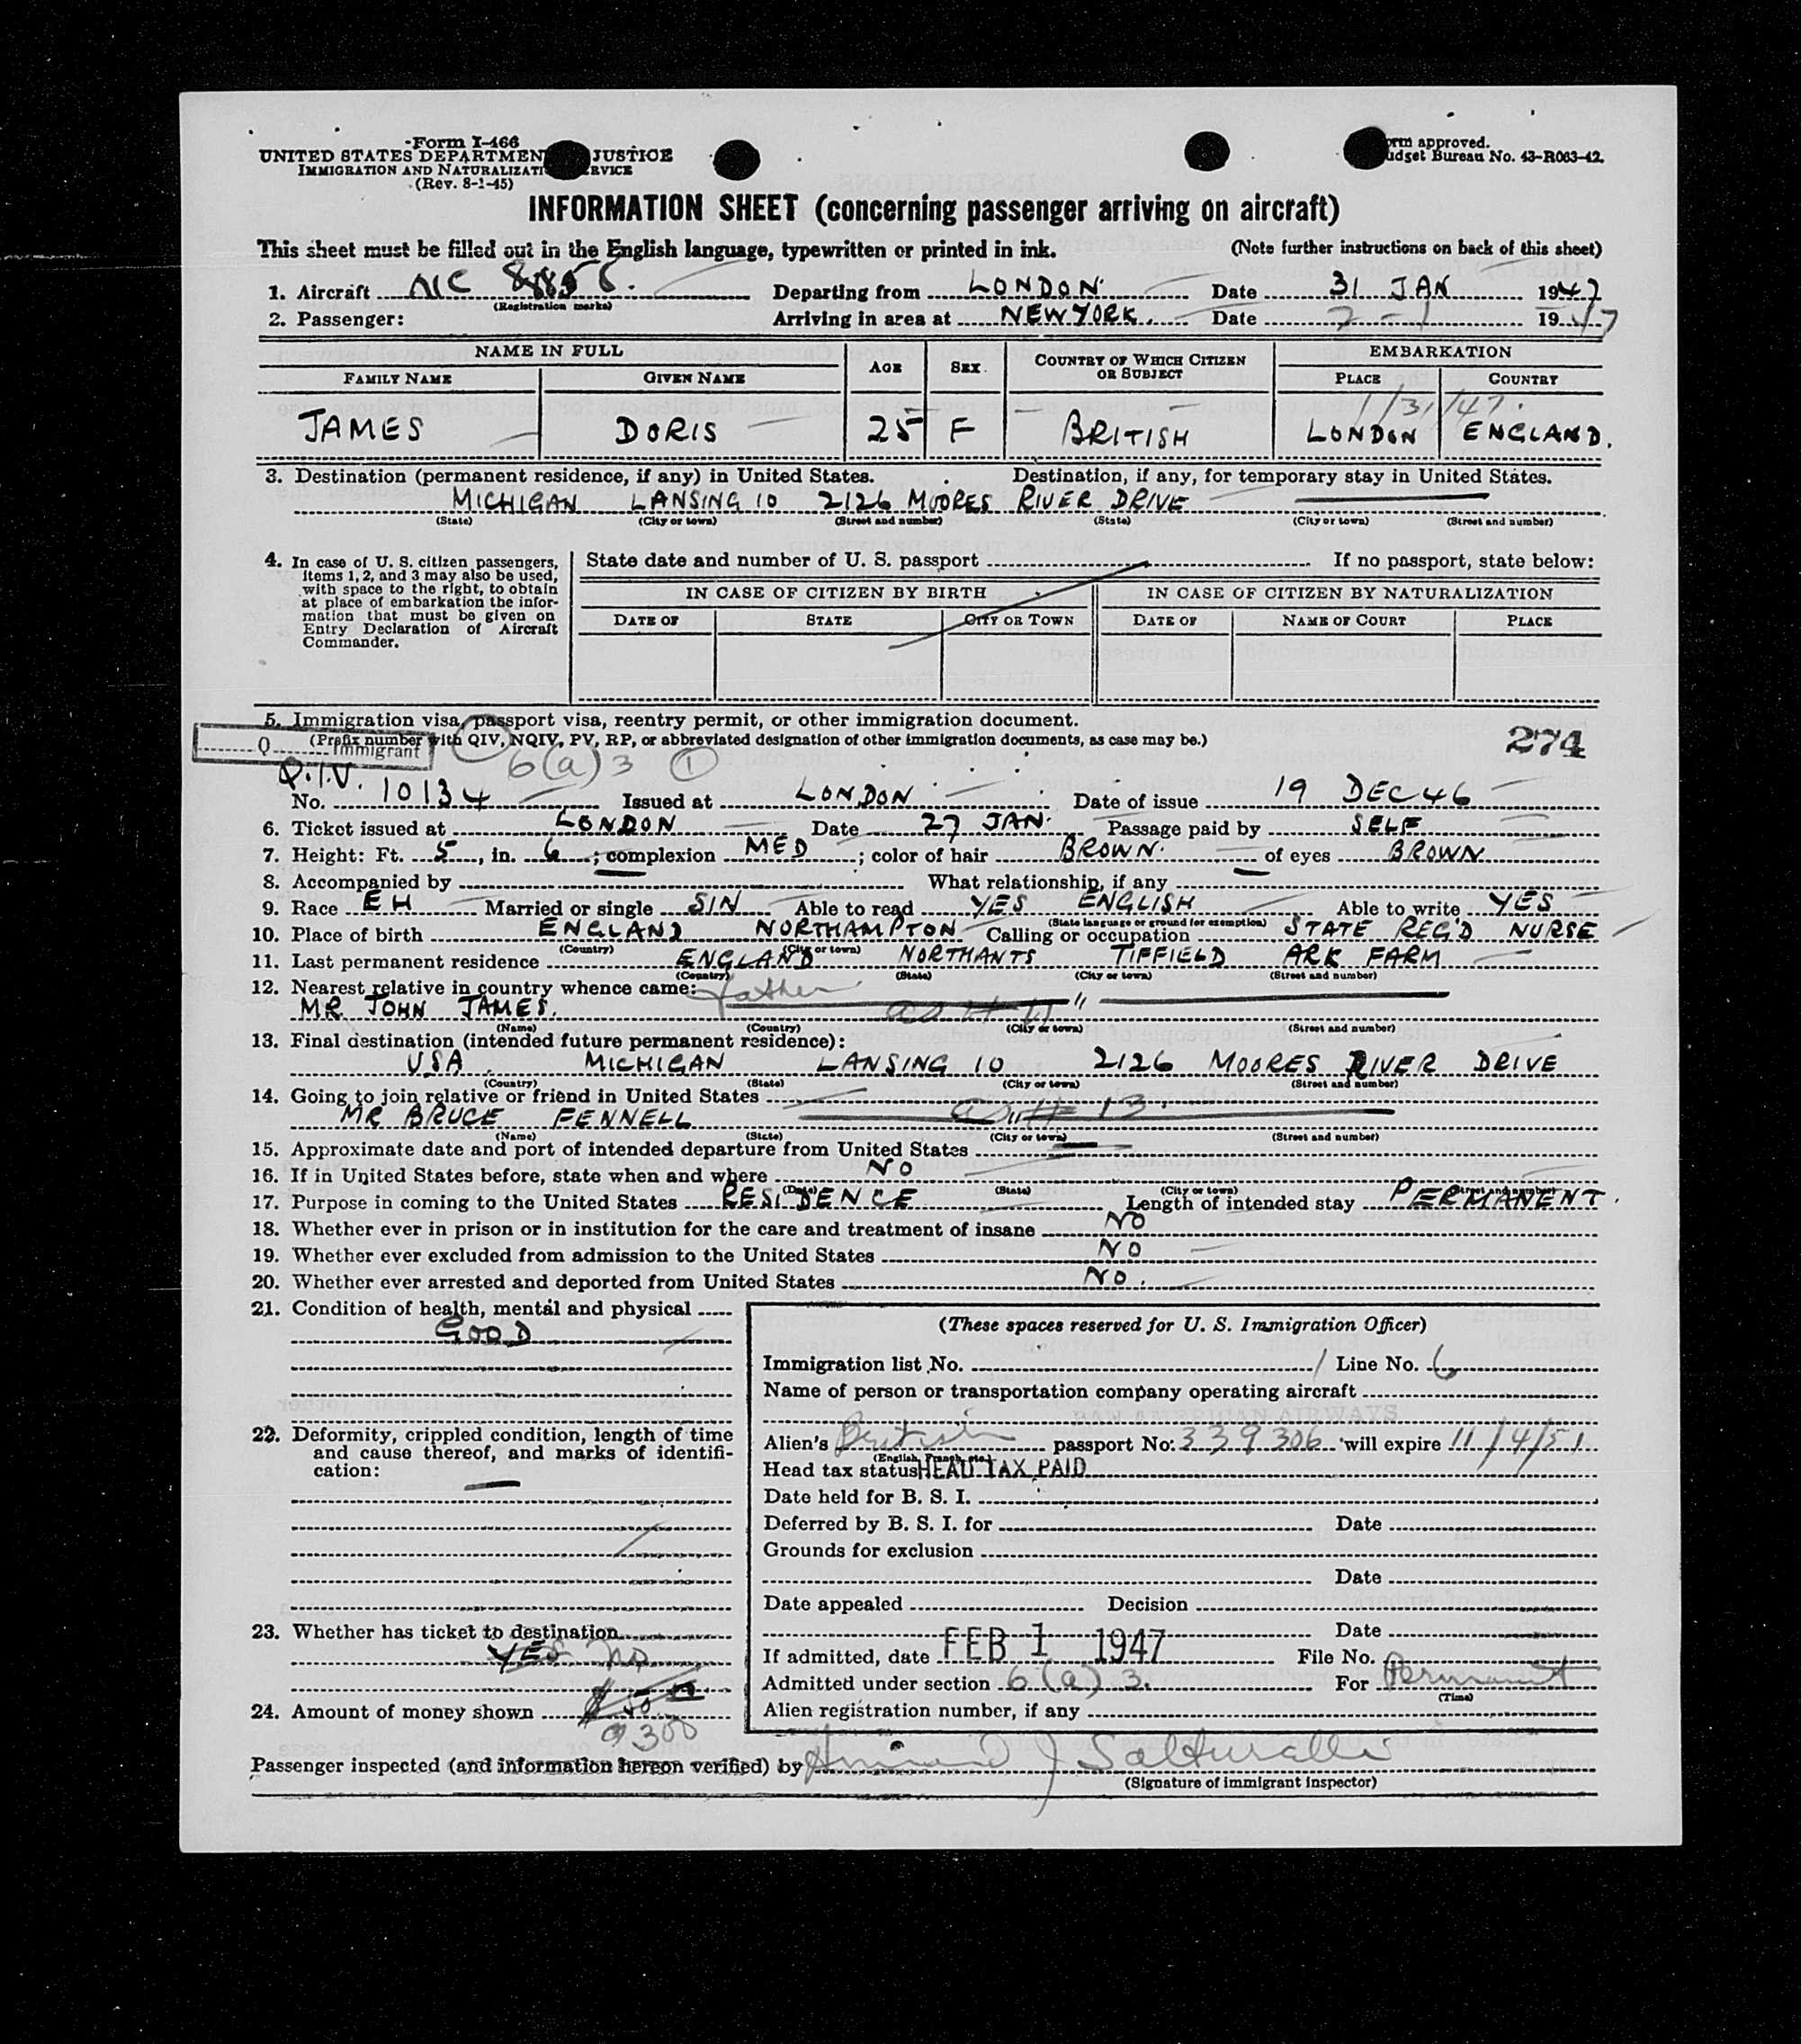 Form I-466
UNITED STATES DEPARTMEN JUSTICE
IMMIGRATION AND NATURALIZATI RVICE
(Rev. 8-1-45)
orm approved.
udget Bureau No. 43-R063-42.
INFORMATION SHEET (concerning passenger arriving on aircraft)
This sheet must be filled out in the English language, typewritten or printed in ink. (Note further instructions on back of this sheet)
1. Aircraft NC Departing from LONDON. Date 31 JAN 1947
(Registration marks)
2. Passenger: Arriving in area at NEW YORK. Date 2-1 1947
NAME IN FULL AGE SEX COUNTRY OF WHICH CITIZEN OR SUBJECT EMBARKATION
FAMILY NAME GIVEN NAME PLACE COUNTRY
1/31/47.
JAMES DORIS 25 F BRITISH LONDON ENGLAND.
3. Destination (permanent residence, if any) in United States. Destination, if any, for temporary stay in United States.
MICHIGAN LANSING 10 2126 MOORES RIVER DRIVE
(State) (City or town) (Street and number) (State) (City or town) (Street and number)
4. In case of U. S. citizen passengers, items 1, 2, and 3 may also be used, with space to the right, to obtain at place of embarkation the information that must be given on Entry Declaration of Aircraft Commander.
State date and number of U. S. passport If no passport, state below:
IN CASE OF CITIZEN BY BIRTH IN CASE OF CITIZEN BY NATURALIZATION
DATE OF STATE CITY OR TOWN DATE OF NAME OF COURT PLACE
5. Immigration visa, passport visa, reentry permit, or other immigration document.
(Prefix number with QIV, NQIV, PV, RP, or abbreviated designation of other immigration documents, as case may be.)
274
Q Immigrant
6(a)3 1
Q.I.V.
No. 10134 Issued at LONDON Date of issue 19 DEC 46
6. Ticket issued at LONDON Date 27 JAN. Passage paid by SELF
7. Height: Ft. 5, in. 6; complexion MED; color of hair BROWN. of eyes BROWN
8. Accompanied by What relationship, if any
9. Race EH Married or single SIN Able to read YES ENGLISH Able to write YES
(State language or ground for exemption)
10. Place of birth ENGLAND NORTHAMPTON Calling or occupation STATE REG'D NURSE
(Country) (City or town)
11. Last permanent residence ENGLAND NORTHANTS TIFFIELD ARK FARM
(Country) (State) (City or town) (Street and number)
12. Nearest relative in country whence came: father
MR JOHN JAMES. as # 11 "
(Name) (Country) (City or town) (Street and number)
13. Final destination (intended future permanent residence):
USA MICHIGAN LANSING 10 2126 MOORES RIVER DRIVE
(Country) (State) (City or town) (Street and number)
14. Going to join relative or friend in United States
MR BRUCE FENNELL as # 13.
(Name) (State) (City or town) (Street and number)
15. Approximate date and port of intended departure from United States
16. If in United States before, state when and where NO
(Date) (State) (City or town) (Street and number)
17. Purpose in coming to the United States RESIDENCE Length of intended stay PERMANENT.
18. Whether ever in prison or in institution for the care and treatment of insane NO
19. Whether ever excluded from admission to the United States NO
20. Whether ever arrested and deported from United States NO.
21. Condition of health, mental and physical
GOOD
22. Deformity, crippled condition, length of time and cause thereof, and marks of identification:
23. Whether has ticket to destination
YES no
24. Amount of money shown $50
$300
(These spaces reserved for U. S. Immigration Officer)
Immigration list No. 1 Line No. 6
Name of person or transportation company operating aircraft
PAN AMERICAN AIRWAYS
Alien's British passport No. 339306 will expire 11/4/51
(English, French, etc.)
Head tax status HEAD TAX PAID
Date held for B. S. I.
Deferred by B. S. I. for Date
Grounds for exclusion
Date
Date appealed Decision
Date
If admitted, date FEB 1 1947 File No.
Admitted under section 6(a)3. For Permanent
(Time)
Alien registration number, if any
Passenger inspected (and information hereon verified) by
(Signature of immigrant inspector)